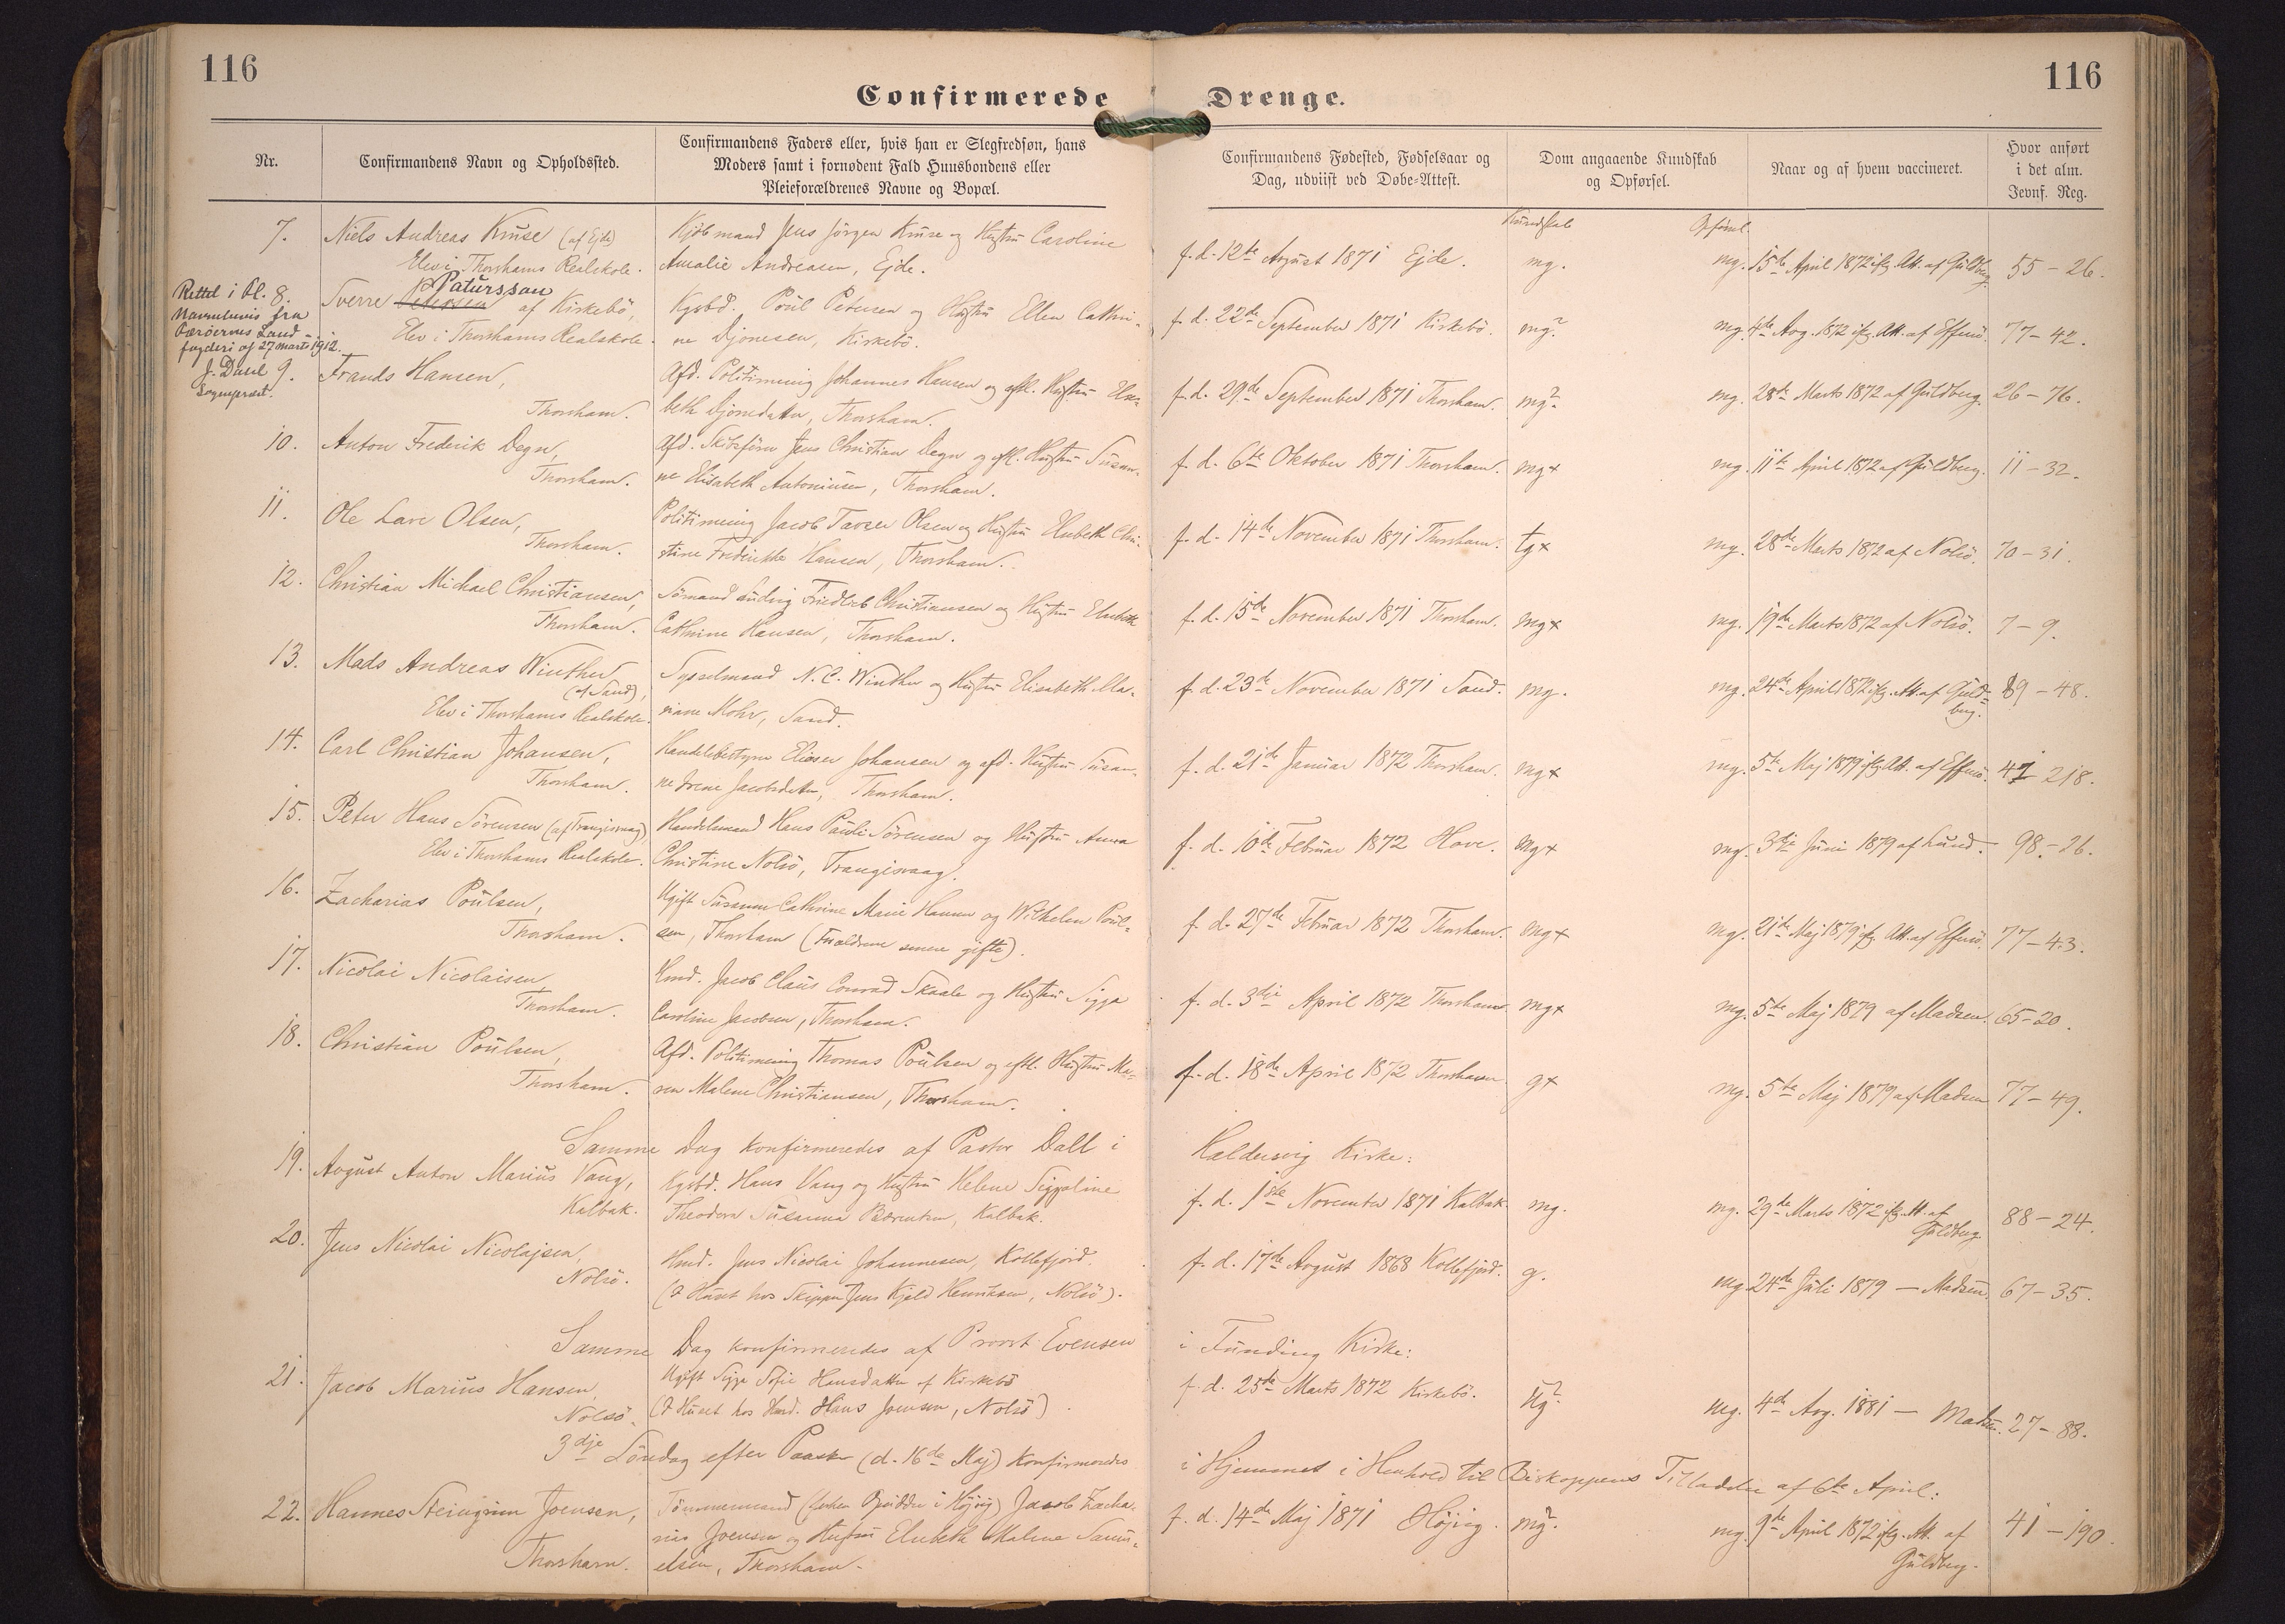 116
116
Confirmerede Drenge.
Nr.
Confirmandens Navn og Opholdssted.
Confirmandens Faders eller, hvis han er Slegfredsøn, hans
Moders samt i fornødent Fald Huusbondens eller
Pleieforældrenes Navne og Bopæl.
Confirmandens Fødested, Fødselsaar og
Dag, udviist ved Døbe-Attest.
Dom angaaende Kundskab
og Opførsel.
Naar og af hvem vaccineret.
Hvor anført
i det alm.
Jevnf. Reg.
Kundskab
Opførsel.
7. Niels Andreas Kruse (af Ejde)
Elev i Thorshavns Realskole.
Kjøbmand Jens Jörgen Kruse og Hustru Caroline
Amalie Andreasen, Ejde.
f. d. 12te August 1871 Ejde. mg. mg. 15de April 1872 ifg. Att. af Guldberg. 55 - 26.
Rettet i
Navnebevis fra
Færöernes Land-
fogderi af 27 marts 1912.
Sognepræst.
8. Sverre Petersen af Kirkebö,
Patursson
Elev i Thorshavns Realskole.
Kgsbd. Poul Petersen og Hustru Ellen Cathri-
ne Djonesen, Kirkebö.
f. d. 22de September 1871 Kirkebö. mg? mg. 4de Avg. 1872 ifg. Att. af Effersö. 77 - 42.
9. Frands Hansen,
Thorshavn.
Afd. Politimening Johannes Hansen og eftl. Hustru Elsa-
beth Djonedatter, Thorshavn.
f. d. 29de September 1871 Thorshavn. mg? mg. 28de Marts 1872 af Guldberg. 26 - 76.
10. Anton Frederik Degn,
Thorshavn.
Afd. Skibsförer Jens Christian Degn og eftl. Hustru Susan-
ne Elisabeth Antoniusen, Thorshavn.
f. d. 6te Oktober 1871 Thorshavn. mg+ mg. 11te April 1872 af Guldberg. 11 - 32.
11. Ole Lare Olsen,
Thorshavn.
Politimening Jacob Olsen og Hustru Elsebeth Chri-
stine Frederikke Hansen, Thorshavn.
f. d. 14de November 1871 Thorshavn. tg+ mg. 28de Marts 1872 af Nolsö. 70 - 31.
12. Christian Michael Christiansen,
Thorshavn.
Sömand Ludvig Friedlieb Christiansen og Hustru Elsebeth
Cathrine Hansen, Thorshavn.
f. d. 15de November 1871 Thorshavn. mg+ mg. 19de Marts 1872 af Nolsö. 7 - 9.
13. Mads Andreas Winther
(af Sand),
Elev i Thorshavns Realskole.
Sysselmand N. C. Winther og Hustru Elisabeth Ma-
riane Mohr, Sand.
f. d. 23de November 1871 Sand. mg. mg. 24de April 1872 ifg. Att. af Guld-
berg. 89 - 48.
14. Carl Christian Johansen,
Thorshavn.
Handelsbestyrer Elieser Johansen og afd. Hustru Susan-
ne Irene Jacobsdatter, Thorshavn.
f. d. 21de Januar 1872 Thorshavn. mg+ mg. 5te Maj 1879 ifg. Att. af Effersö. 41 218.
15. Peter Hans Sörensen (af Trangisvaag),
Elev i Thorshavns Realskole.
Handelsmand Hans Pauli Sörensen og Hustru Anna
Christine Nolsö, Trangisvaag.
f. d. 10de Februar 1872 Hove. mg+ mg. 3dje Juni 1879 af Lund. 98 - 26.
16. Zacharias Poulsen,
Thorshavn.
Ugift Susanne Cathrine Marie Hansen og Wilhelm Poul-
sen, Thorshavn (Forældrene senere gifte).
f. d. 27de Februar 1872 Thorshavn. mg+ mg. 21de Maj 1879 ifg. Att. af Effersö. 77 - 43.
17. Nicolai Nicolaisen,
Thorshavn.
Hmd. Jacob Claus Conrad Skaale og Hustru Sigga
Caroline Jacobsen, Thorshavn.
f. d. 3dje April 1872 Thorshavn. mg+ mg. 5te Maj 1879 af Madsen. 65 - 20.
18. Christian Poulsen,
Thorshavn.
Afd. Politimening Thomas Poulsen og eftl. Hustru Ma-
ren Malene Christiansen, Thorshavn.
f. d. 18de April 1872 Thorshavn. g+ mg. 5te Maj 1879 af Madsen 77 - 49.
Samme Dag konfirmeredes af Pastor Dall i Haldersvig Kirke:
19. Avgust Anton Marius Vang,
Kalbak.
Kgsbd. Hans Vang og Hustru Helene Siggaline
Theodora Susanna Bærentsen, Kalbak.
f. d. 1ste November 1871 Kalbak. mg. mg. 29de Marts 1872 ifg. Att. af
Guldberg 88 - 24.
20. Jens Nicolai Nicolajsen,
Nolsö.
Hmd. Jens Nicolai Johannesen, Kollefjord.
(I Huset hos Skipper Jens Kjeld Henriksen, Nolsö).
f. d. 17de Avgust 1868 Kollefjord. g. mg. 24de Juli 1879 — Madsen. 67 - 35.
Samme Dag konfirmeredes af Provst Evensen i Funding Kirke:
21. Jacob Marius Hansen,
Nolsö.
Ugift Sigge Sofie Hansdatter af Kirkebö
(I Huset hos Hmd. Hans Joensen, Nolsö).
f. d. 25de Marts 1872 Kirkebö. ug? mg. 4de Avg. 1881 — Madsen. 27 - 88.
3dje Söndag efter Paaske (d. 16de Maj) konfirmeredes i Hjemmet i Henhold til Biskoppens Tilladelse af 6te April:
22. Hannes Steingrim Joensen,
Thorshavn.
Tömmermand i Höjvig) Jacob Zacha-
rias Joensen og Hustru Elsebeth Malene Samu-
elsen, Thorshavn.
f. d. 14de Maj 1871 Höjvig. mg? mg. 9de April 1872 ifg. Att. af
Guldberg. 41 - 190.